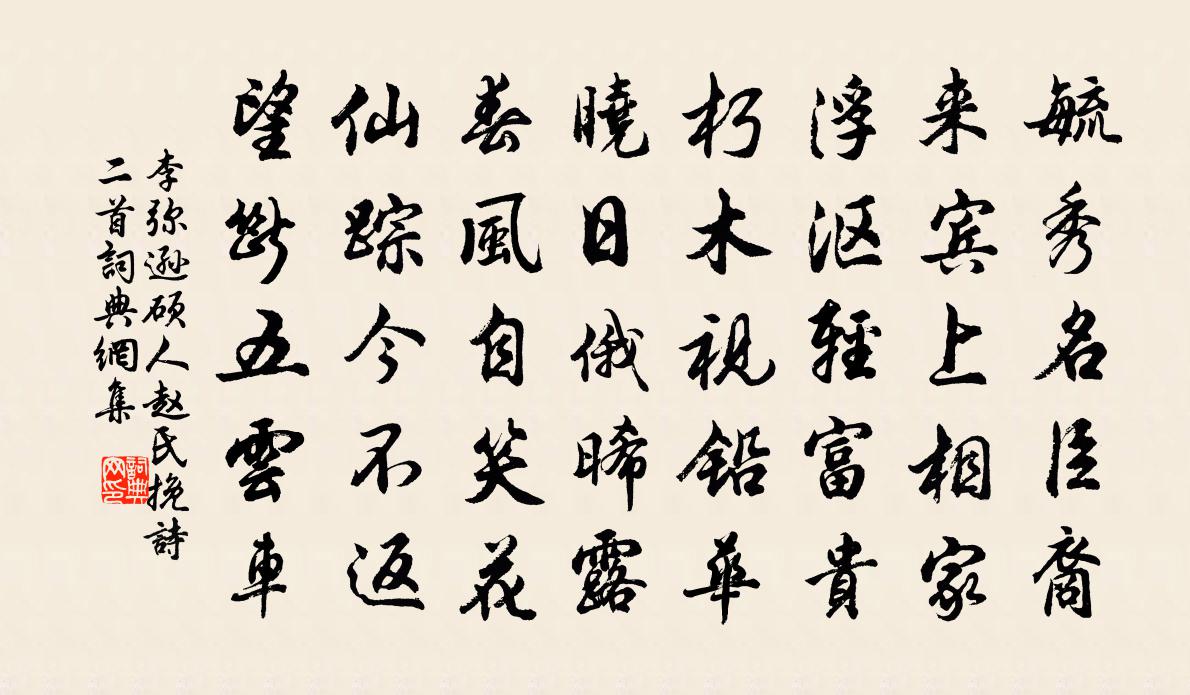 毓秀名臣裔
来宾上相家
浮沤輕富貴
朽木視鉛華
曉日俄晞露
春風自笑花
仙踪今不返
望斷五雲車
李弥遜碩人赵氏挽詩
二首詞典網集
詞典网印